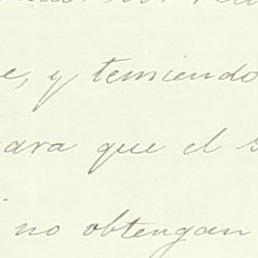 e, y temiendo
para que el
no obtengan